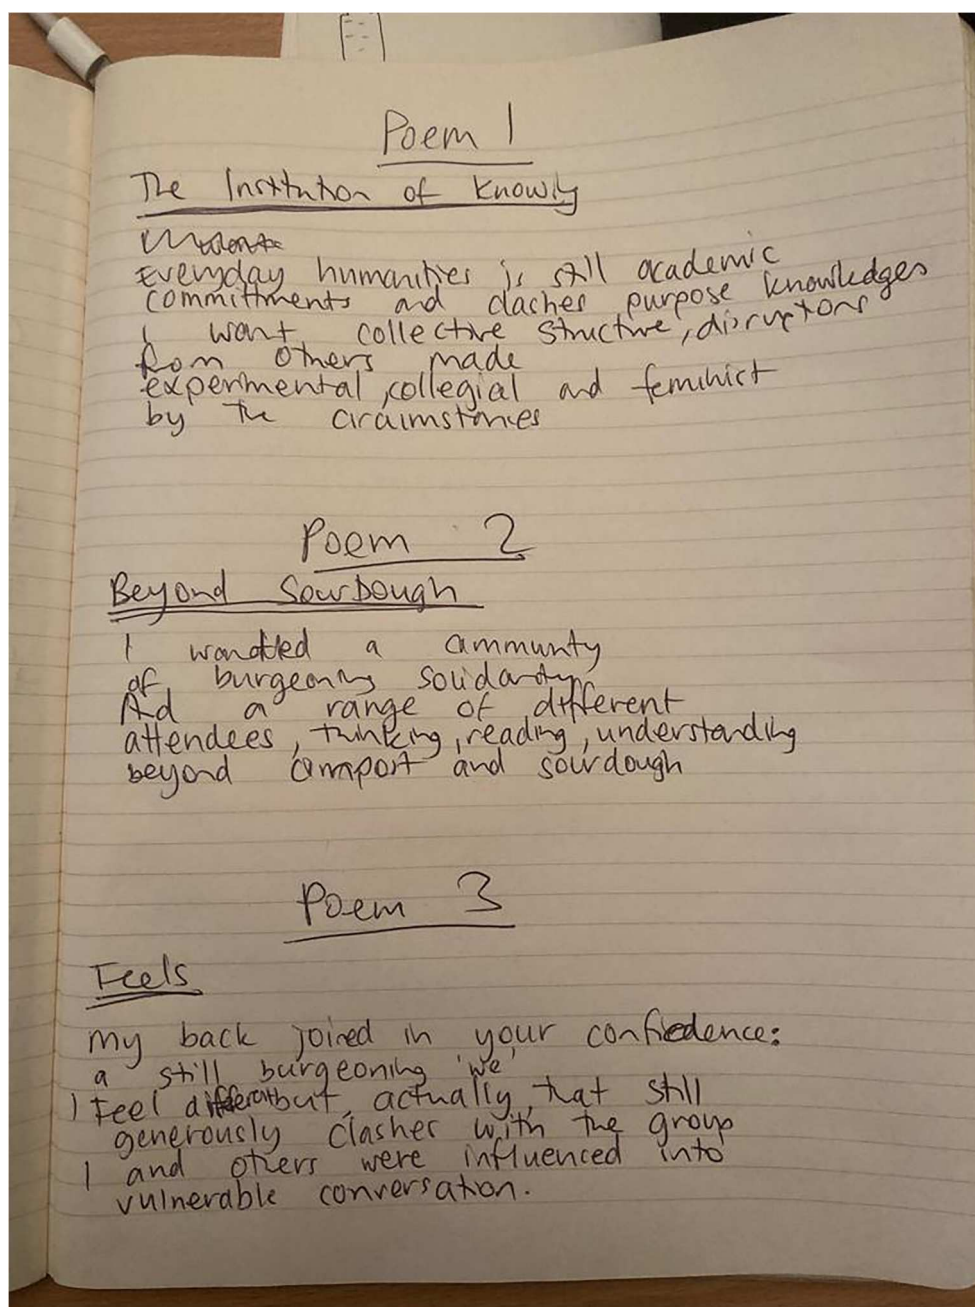 Poem 1
The Institution of Knowing
Everyday humanities is still academic
committments and clashes purpose knowledges
I want collective structure, disruptions
from others made
experimental, collegial and feminist
by the circumstances
Poem 2
Beyond Sourdough
I wanted a community
of burgeoning solidarity
And a range of different
attendees, thinking, reading, understanding
beyond compost and sourdough
Poem 3
Feels
my back joined in your confidence:
a still burgeoning 'we'
I Feel different but, actually, that still
generously clashes with the group
I and others were influenced into
vulnerable conversation.